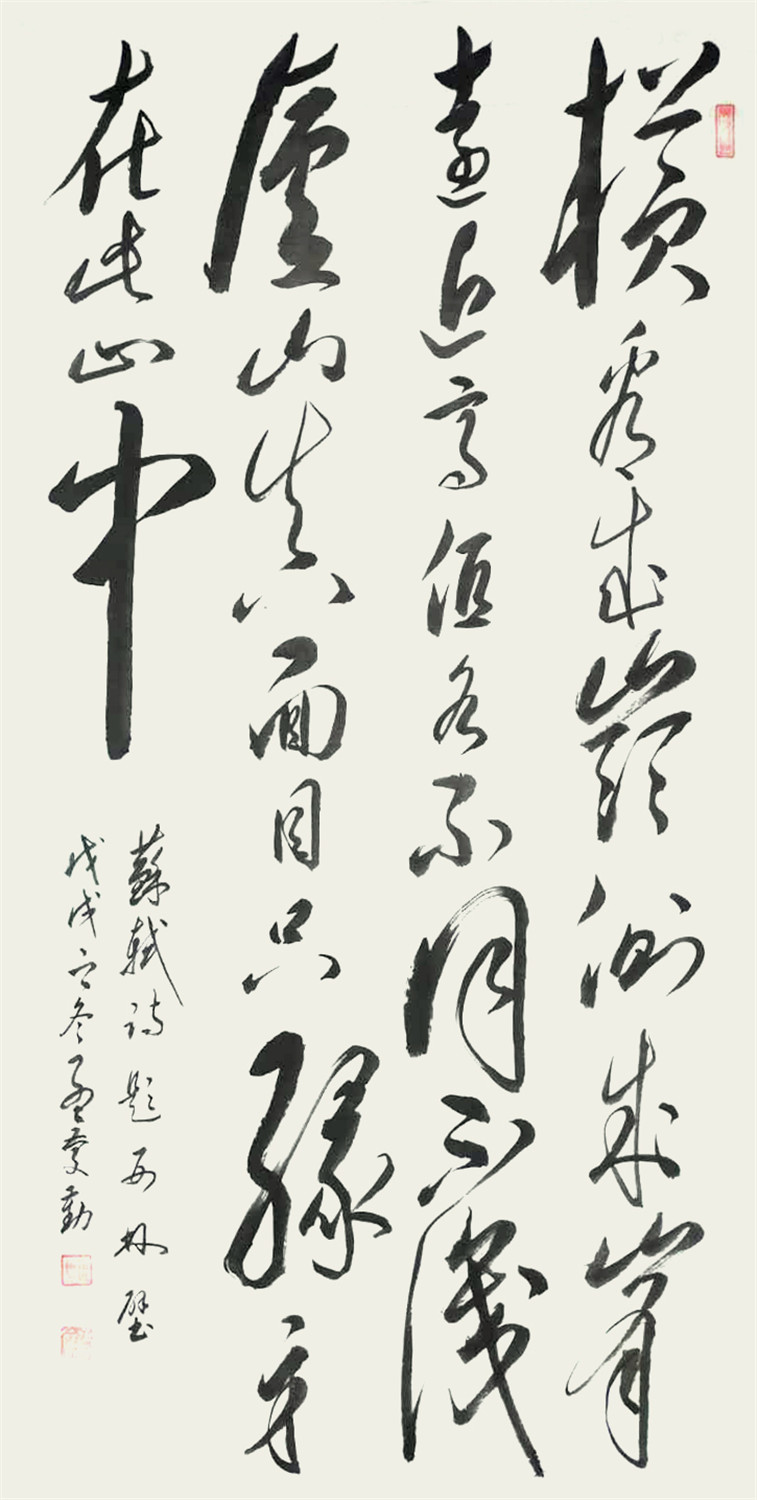 橫看成嶺側成峯
遠近高低各不同不識
廬山真面目只緣身
在此山中
蘇軾詩題西林壁
戊戌之冬孟慶勤